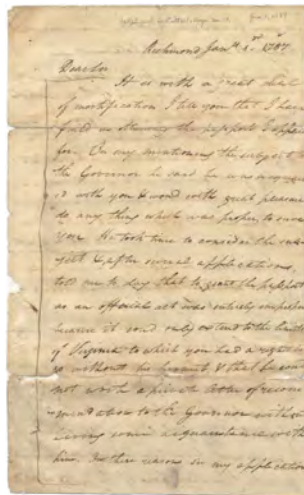 Richmond Jany. 2d. 1787
Dear Sir
It is with a great deal
of mortification I tell you that I have
faild in obtaining the passport I applied
for. On my mentioning the subject to
the Governor he said he was acquainted
with you & woud with great pleasure
do any thing which was proper to serve
you. He took time to consider the sub-
ject & after several applications
told me to day that to grant the passport
as an official act was entirely improper
because it coud only extend to the limits
of Virginia to which you had a right to
go without his permit & that he coud
not write a private letter of recom-
mendation to the Governor without
having some acquaintance with
him. In this reason on my application